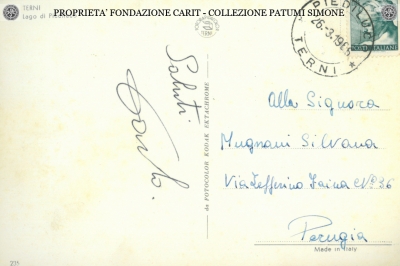 PROPRIETA' FONDAZIONE CARIT - COLLEZIONE PATUMI SIMONE
TERNI
Lago di
PIEDILUCO
26.3.19
TERNI
POSTE ITALIANE
Saluti
da FOTOCOLOR KODAK EKTACHROME
Alla Signora
Mugnani Silvana
Via Zefferino Faina N° 36
Perugia
Made in Italy